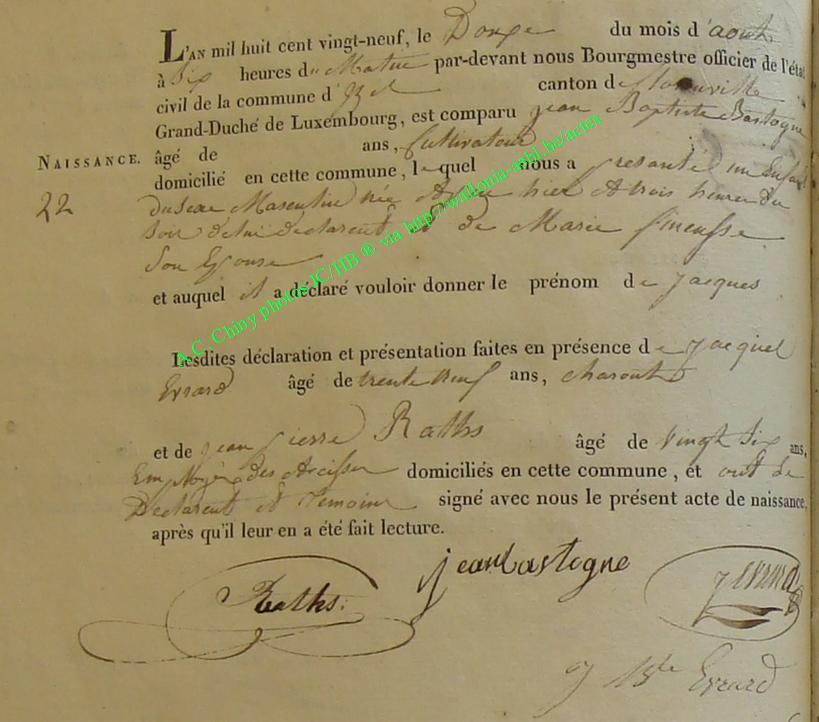 L'AN mil huit cent vingt-neuf, le Douze du mois d'aout
à Six heures du Matin par-devant nous Bourgmestre officier de l'état
civil de la commune d'Izel canton de
Grand-Duché de Luxembourg, est comparu jean Baptiste Bastogne
NAISSANCE. âgé de ans, Cultivateur
domicilié en cette commune, lequel nous a presenté un Enfant
22 du Sexe Masculin née hier A trois heures du
Soir de lui declarent et de Marie
Son Epouse
et auquel il a déclaré vouloir donner le prénom de jacques
Lesdites déclaration et présentation faites en présence de jacques
Evrard âgé de trente neuf ans,
et de jean pierre Raths âgé de vingt Six ans,
Employé des Accises domiciliés en cette commune, et ont le
Declarent et temoins signé avec nous le présent acte de naissance,
après qu'il leur en a été fait lecture.
jean bastogne
Raths. j evrard
Evrard
A.C. Chiny photos JC/HB ® via http://wallonia-asbl.be/actes